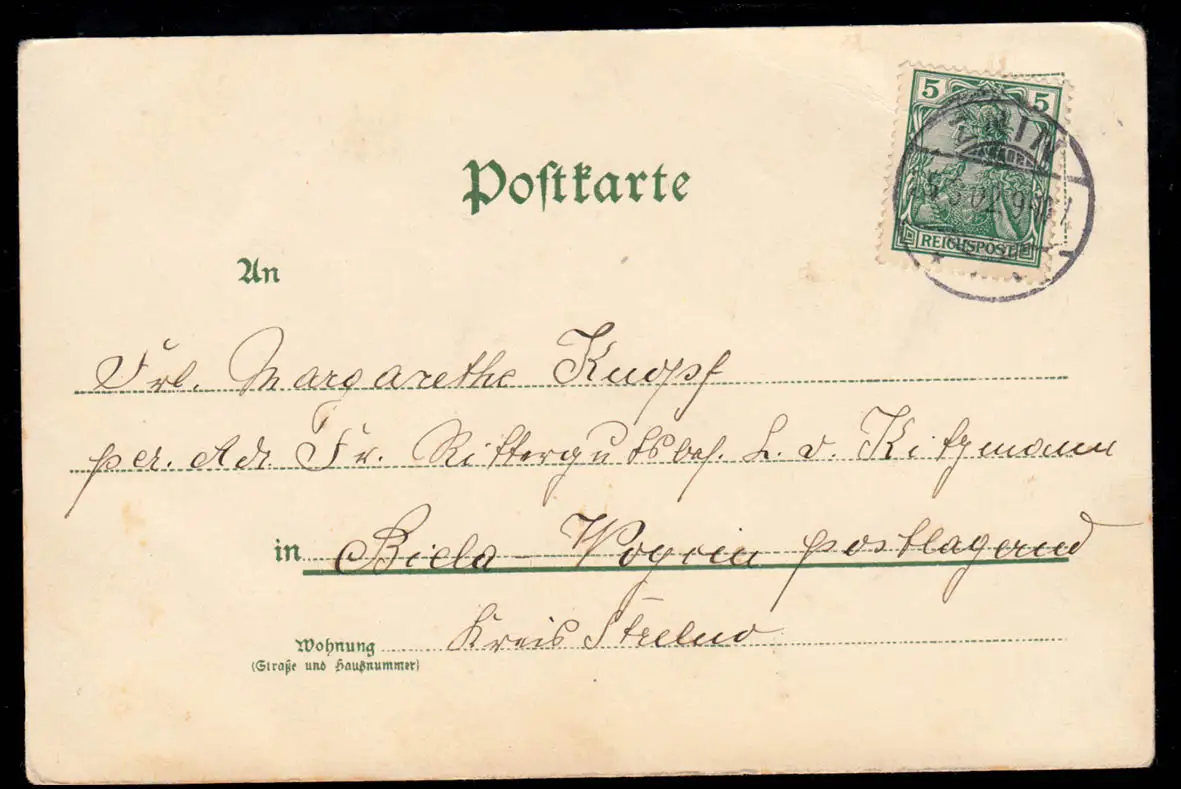 5 5
REICHSPOST
02.9
Postkarte
An
Frl. Margarethe Knopf
per. Adr. Fr. Rittergutsbes. L. v. Kitzmann
in postlagernd
Kreis Strelno
Wohnung
(Straße und Hausnummer)